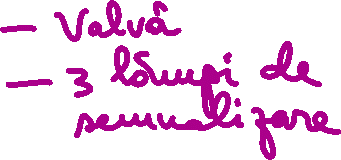 - Valvâ
- 3 lâmpi de
semnalizare